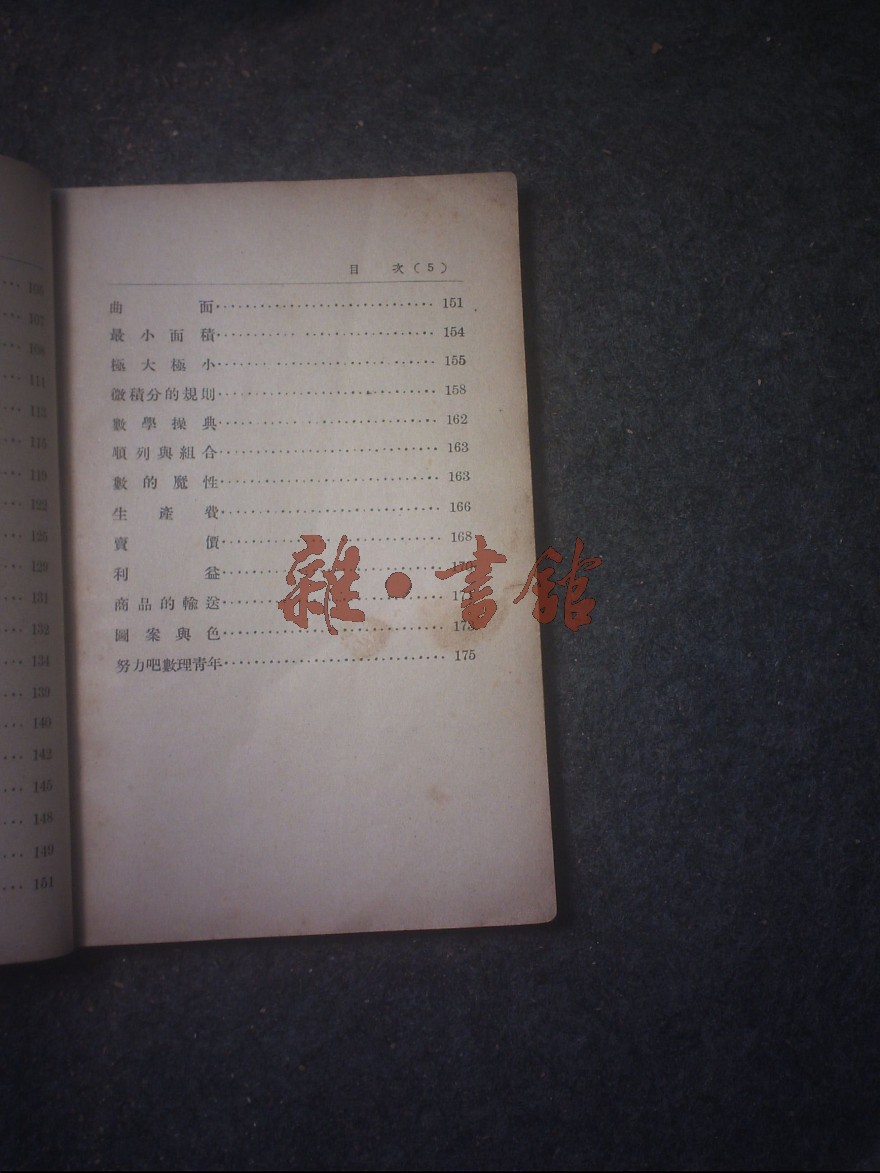 105
107
108
111
113
115
119
122
125
129
131
132
134
139
140
142
145
148
149
151
目 次(5)
曲面 151
最小面積 154
極大極小 155
微積分的規則 158
數學操典 162
順列與組合 163
數的魔性 163
生產費 166
賣價 168
利益 170
商品的輸送
圖案與色 173
努力吧數理青年 175
雜·書館